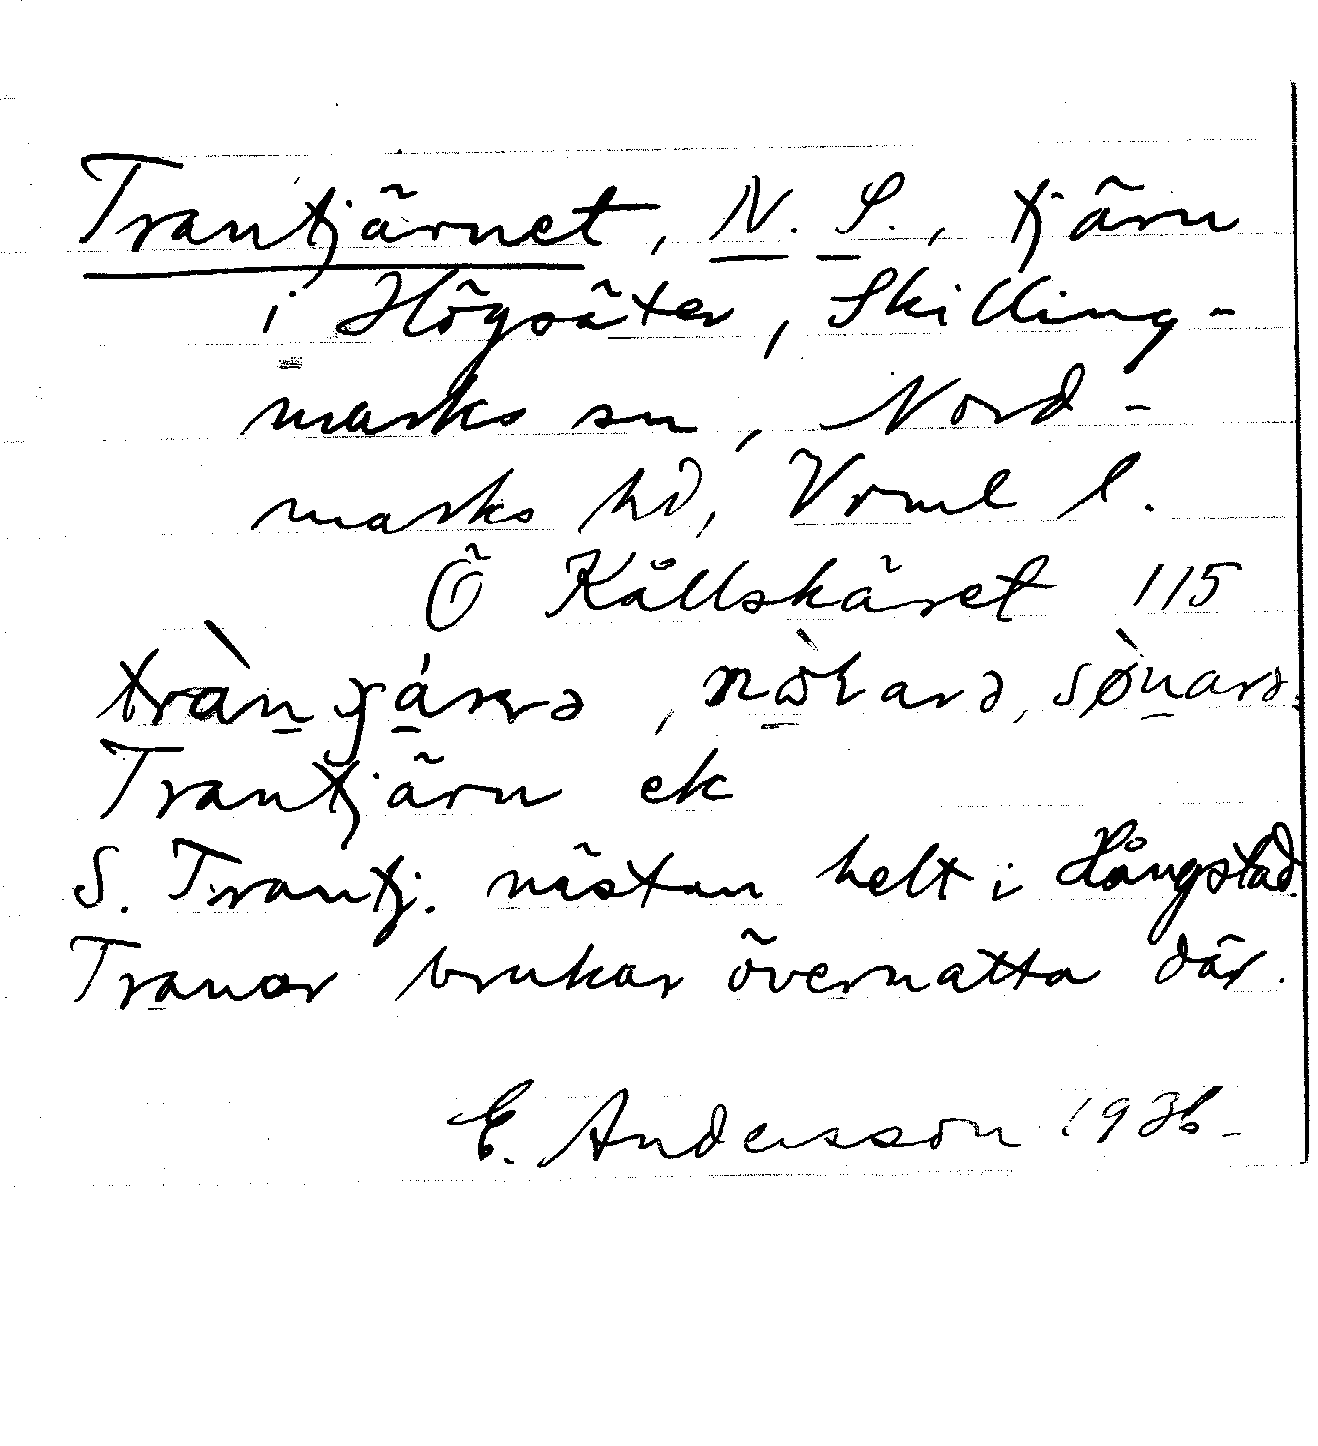 Trantjärnet, N. S., tjärn
i Högsäter, Skilling-
marks sn, Nord-
marks hd, Vrml l.
Ö Källskäret 115
Trantjärn ek
S. Trantj. nästan helt i Hångstad.
Tranor brukar övernatta där.
E. Andersson 1936